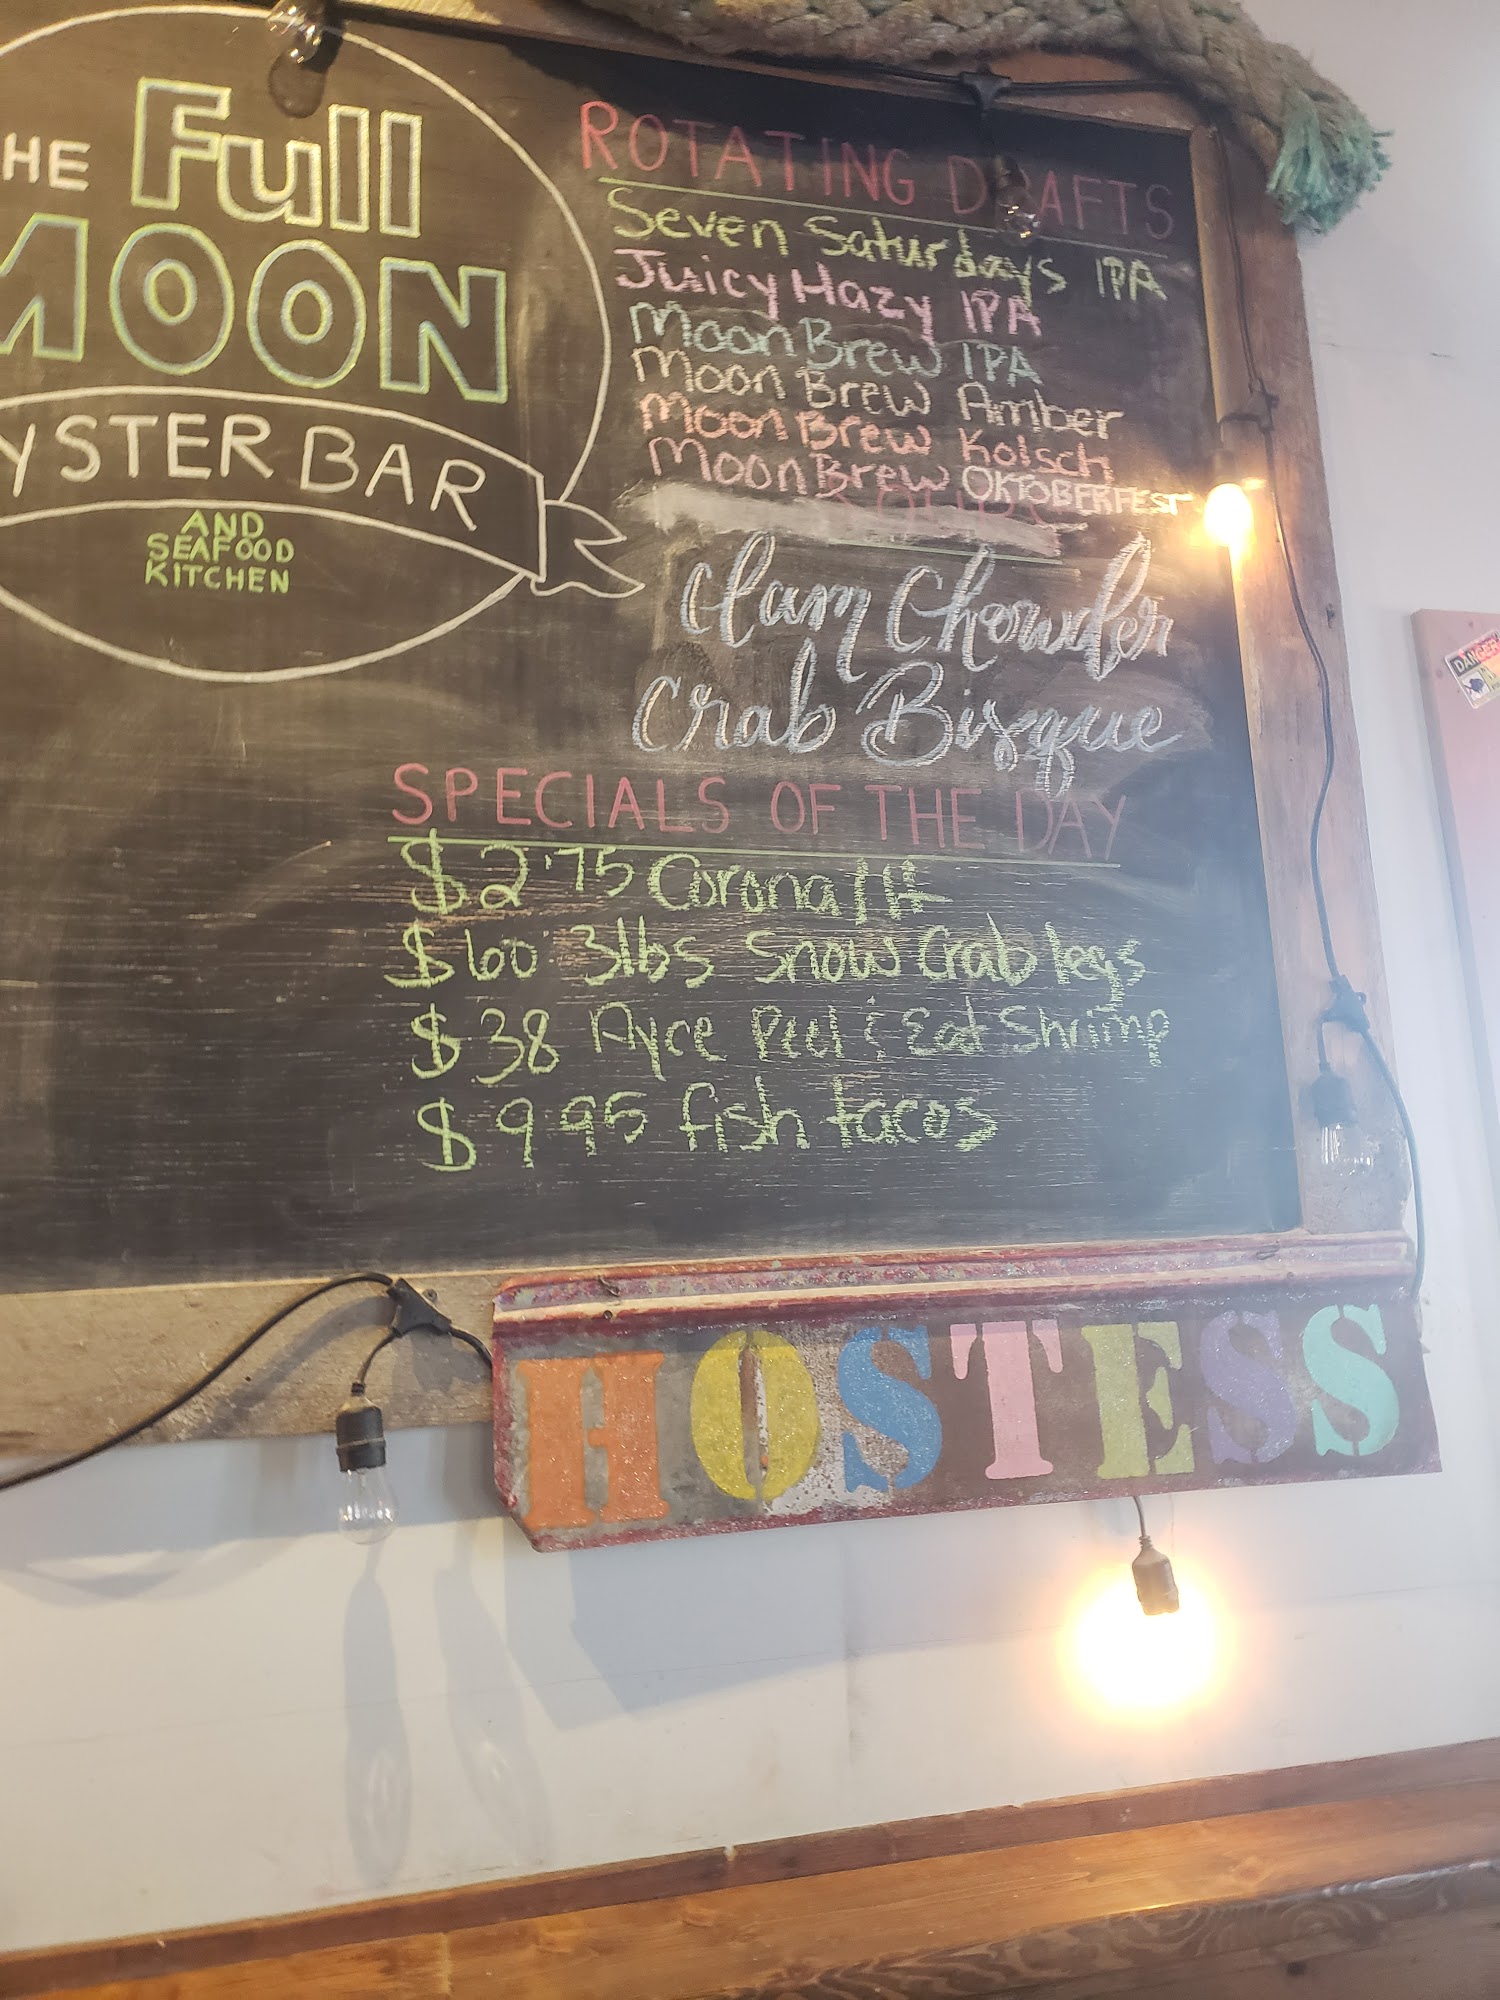 HE Full
MOON
YSTER BAR
AND
SEAFOOD
KITCHEN
ROTATING DRAFTS
Seven Saturdays IPA
Juicy Hazy IPA
Moon Brew IPA
Moon Brew Amber
Moon Brew Kolsch
Moon Brew OKTOBERFEST
Clam Chowder
Crab Bisque
SPECIALS OF THE DAY
$2.75 Corona
$60 3lbs Snow Crab legs
$38 Ayce Peel & Eat Shrimp
$9.95 fish tacos
HOSTESS
DANGER